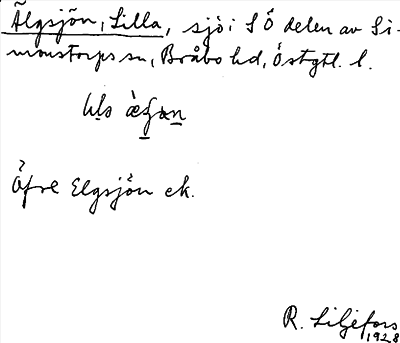 Älgsjön, Lilla, sjö i S Ö delen av Si-
monstorps sn, Bråbo hd, Östgtl. l.
Öfre Elgsjön ek.
R. Liljefors
1928